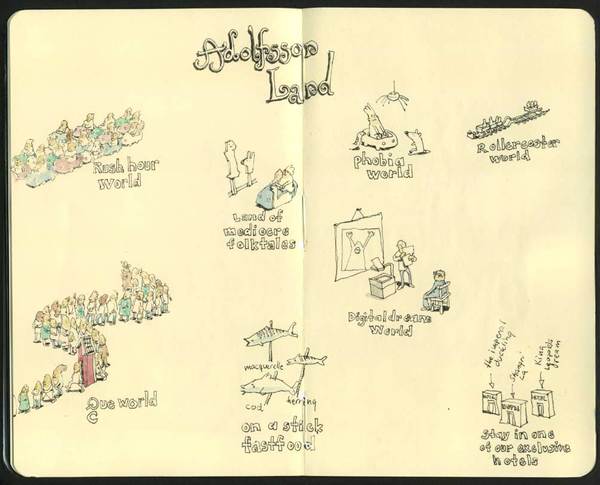 Adolfsson
Land
Rush hour
World
Land of
mediocre
folktales
phobia
world
Rollercoaster
world
Digital dream
World
Que world
macquerelle
cod
herring
on a stick
fastfood
the imperial
duckling
King
leopolds
dream
Stay in one
of our exclusive
hotels